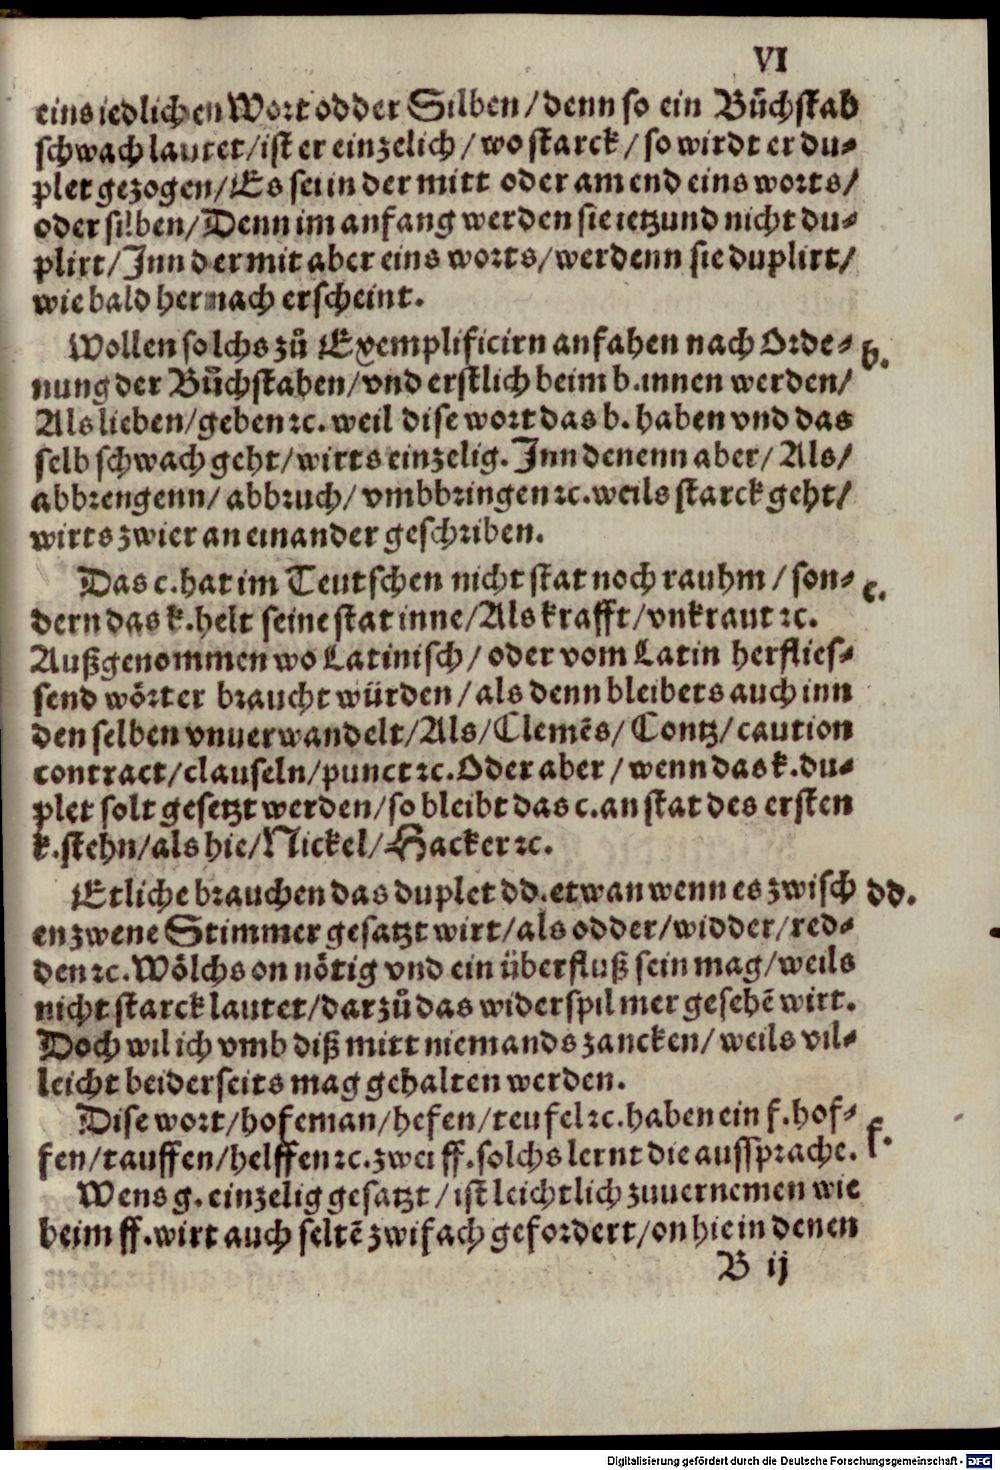 VI
eins iedlichen Wort odder Silben/ denn so ein Bůchstab
schwach lautet/ ist er einzelich/ wo starck/ so wirdt er du⸗
plet gezogen/ Es sei in der mitt oder am end eins worts/
oder silben/ Denn im anfang werden sie ietzund nicht du⸗
plirt/ Inn der mit aber eins worts/ werdenn sie duplirt/
wie bald hernach erscheint.
Wollen solchs zů Exemplificirn anfahen nach Orde⸗ b.
nung der Bůchstaben/ vnd erstlich beim b. innen werden/
Als lieben/ geben ꝛc. weil dise wort das b. haben vnd das
selb schwach geht/ wirts einzelig. Inn denenn aber/ Als/
abbrengenn/ abbruch/ vmbbringen ꝛc. weils starck geht/
wirts zwier an einander geschriben.
Das c. hat im Teutschen nicht stat noch rauhm/ son⸗ c.
dern das k. helt seine stat inne/ Als krafft/ vnkraut ꝛc.
Außgenommen wo Latinisch/ oder vom Latin herflies⸗
send wörter braucht würden/ als denn bleibets auch inn
den selben vnuerwandelt/ Als/ Clemẽs/ Contz/ caution
contract/ clauseln/ punct ꝛc. Oder aber/ wenn das k. du⸗
plet solt gesetzt werden/ so bleibt das c. an stat des ersten
k. stehn/ als hie/ Nickel/ Hacker ꝛc.
Etliche brauchen das duplet dd. etwan wenn es zwisch dd.
en zwene Stimmer gesatzt wirt/ als odder/ widder/ red⸗
den ꝛc. Wölchs on nötig vnd ein überfluß sein mag/ weils
nicht starck lautet/ darzů das widerspil mer gesehẽ wirt.
Doch wil ich vmb diß mitt niemands zancken/ weils vil⸗
leicht beiderseits mag gehalten werden.
Dise wort/ hofeman/ hefen/ teufel ꝛc. haben ein f. hof⸗ f.
fen/ tauffen/ helffen ꝛc. zwei ff. solchs lernt die aussprache.
Wens g. einzelig gesatzt/ ist leichtlich zuuernemen wie
beim ff. wirt auch seltẽ zwifach gefordert/ on hie in denen
B ij
Digitalisierung gefördert durch die Deutsche Forschungsgemeinschaft - DFG